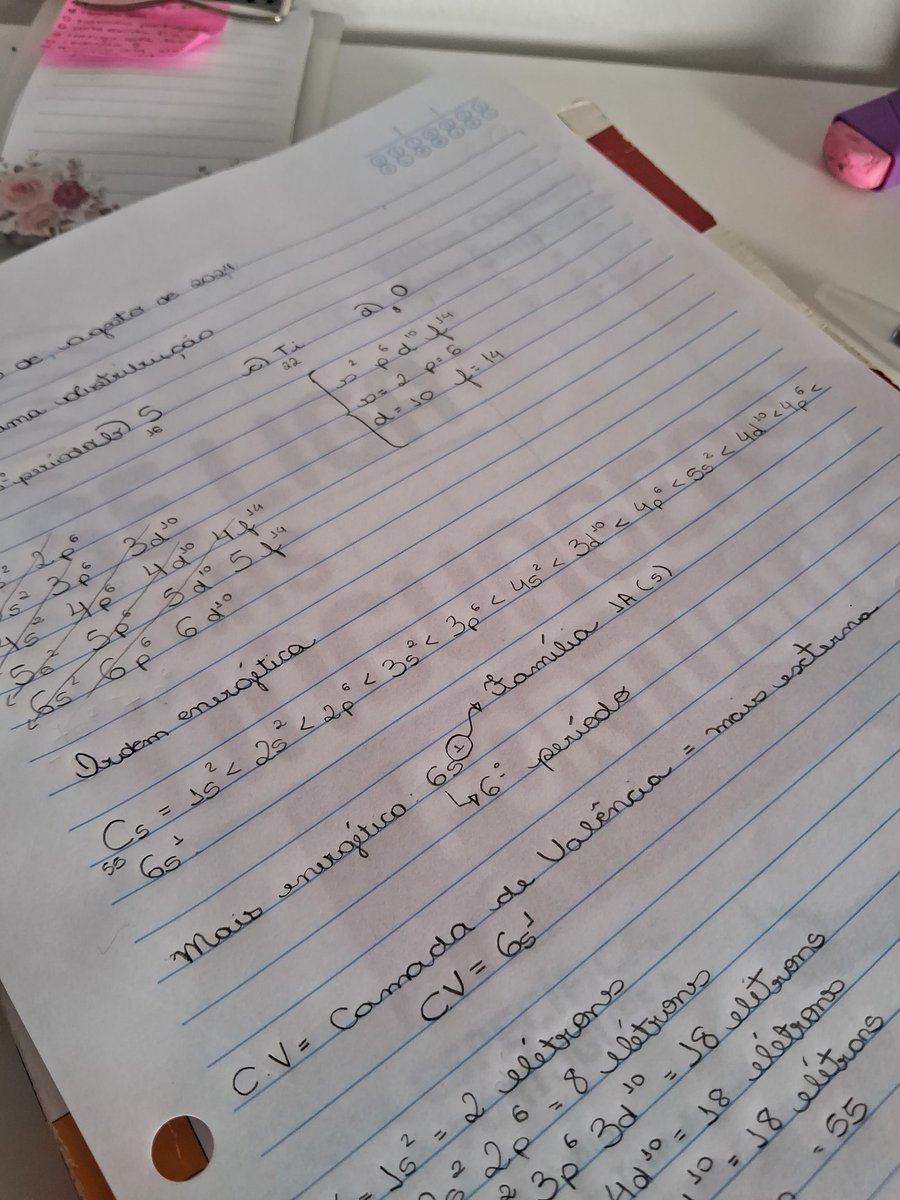 de agosto de 2024
uma distribuição
período b) S
16
c) Ti
22
d) O
8
s² p⁶ d¹⁰ f¹⁴
s=2 p=6
d=10 f=14
2p⁶
3p⁶ 3d¹⁰
4s² 4p⁶ 4d¹⁰ 4f¹⁴
5s² 5p⁶ 5d¹⁰ 5f¹⁴
6s² 6p⁶ 6d¹⁰
Ordem energética
Cs = 1s² < 2s² < 2p⁶ < 3s² < 3p⁶ < 4s² < 3d¹⁰ < 4p⁶ < 5s² < 4d¹⁰ < 4p⁶ <
55 6s¹
Mais energético: 6s¹ → Família 1A (s)
↳ 6º período
C.V = Camada de Valência = mais externa
CV = 6s¹
= 1s² = 2 elétrons
2p⁶ = 8 elétrons
3p⁶ 3d¹⁰ = 18 elétrons
4d¹⁰ = 18 elétrons
10 = 18 elétrons
= 55